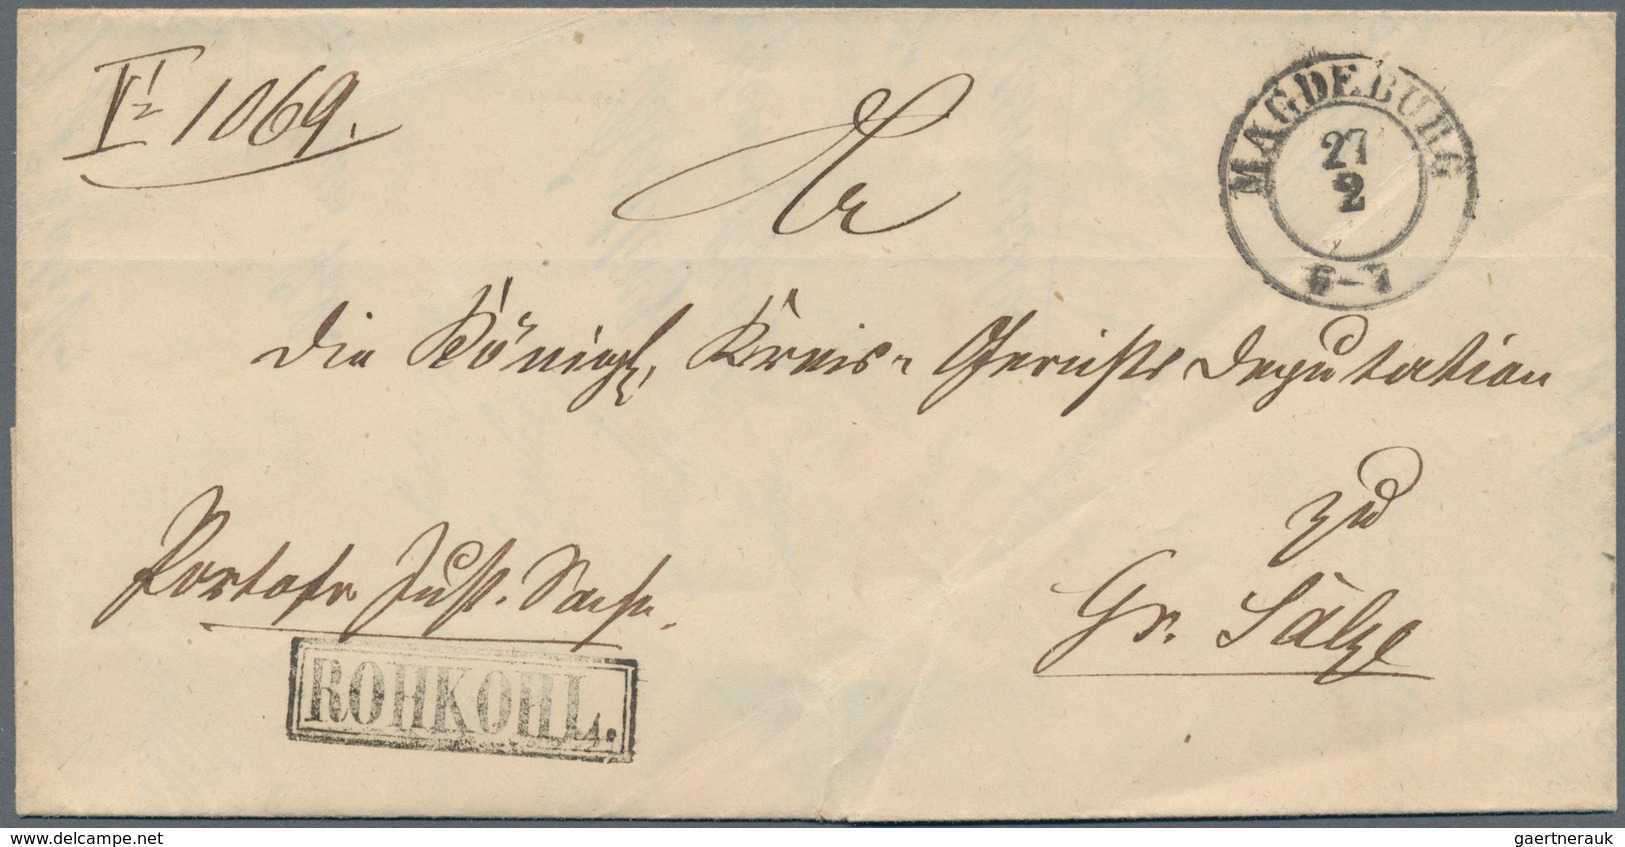 VI 1069.
MAGDEBURG
27
2
6-7
An
die Königl. Kreis-Gerichts Deputation
zu
Gr. Sälze
Portofr Just. Sache.
ROHKOHL.
www.delcampe.net
gaertnerauk